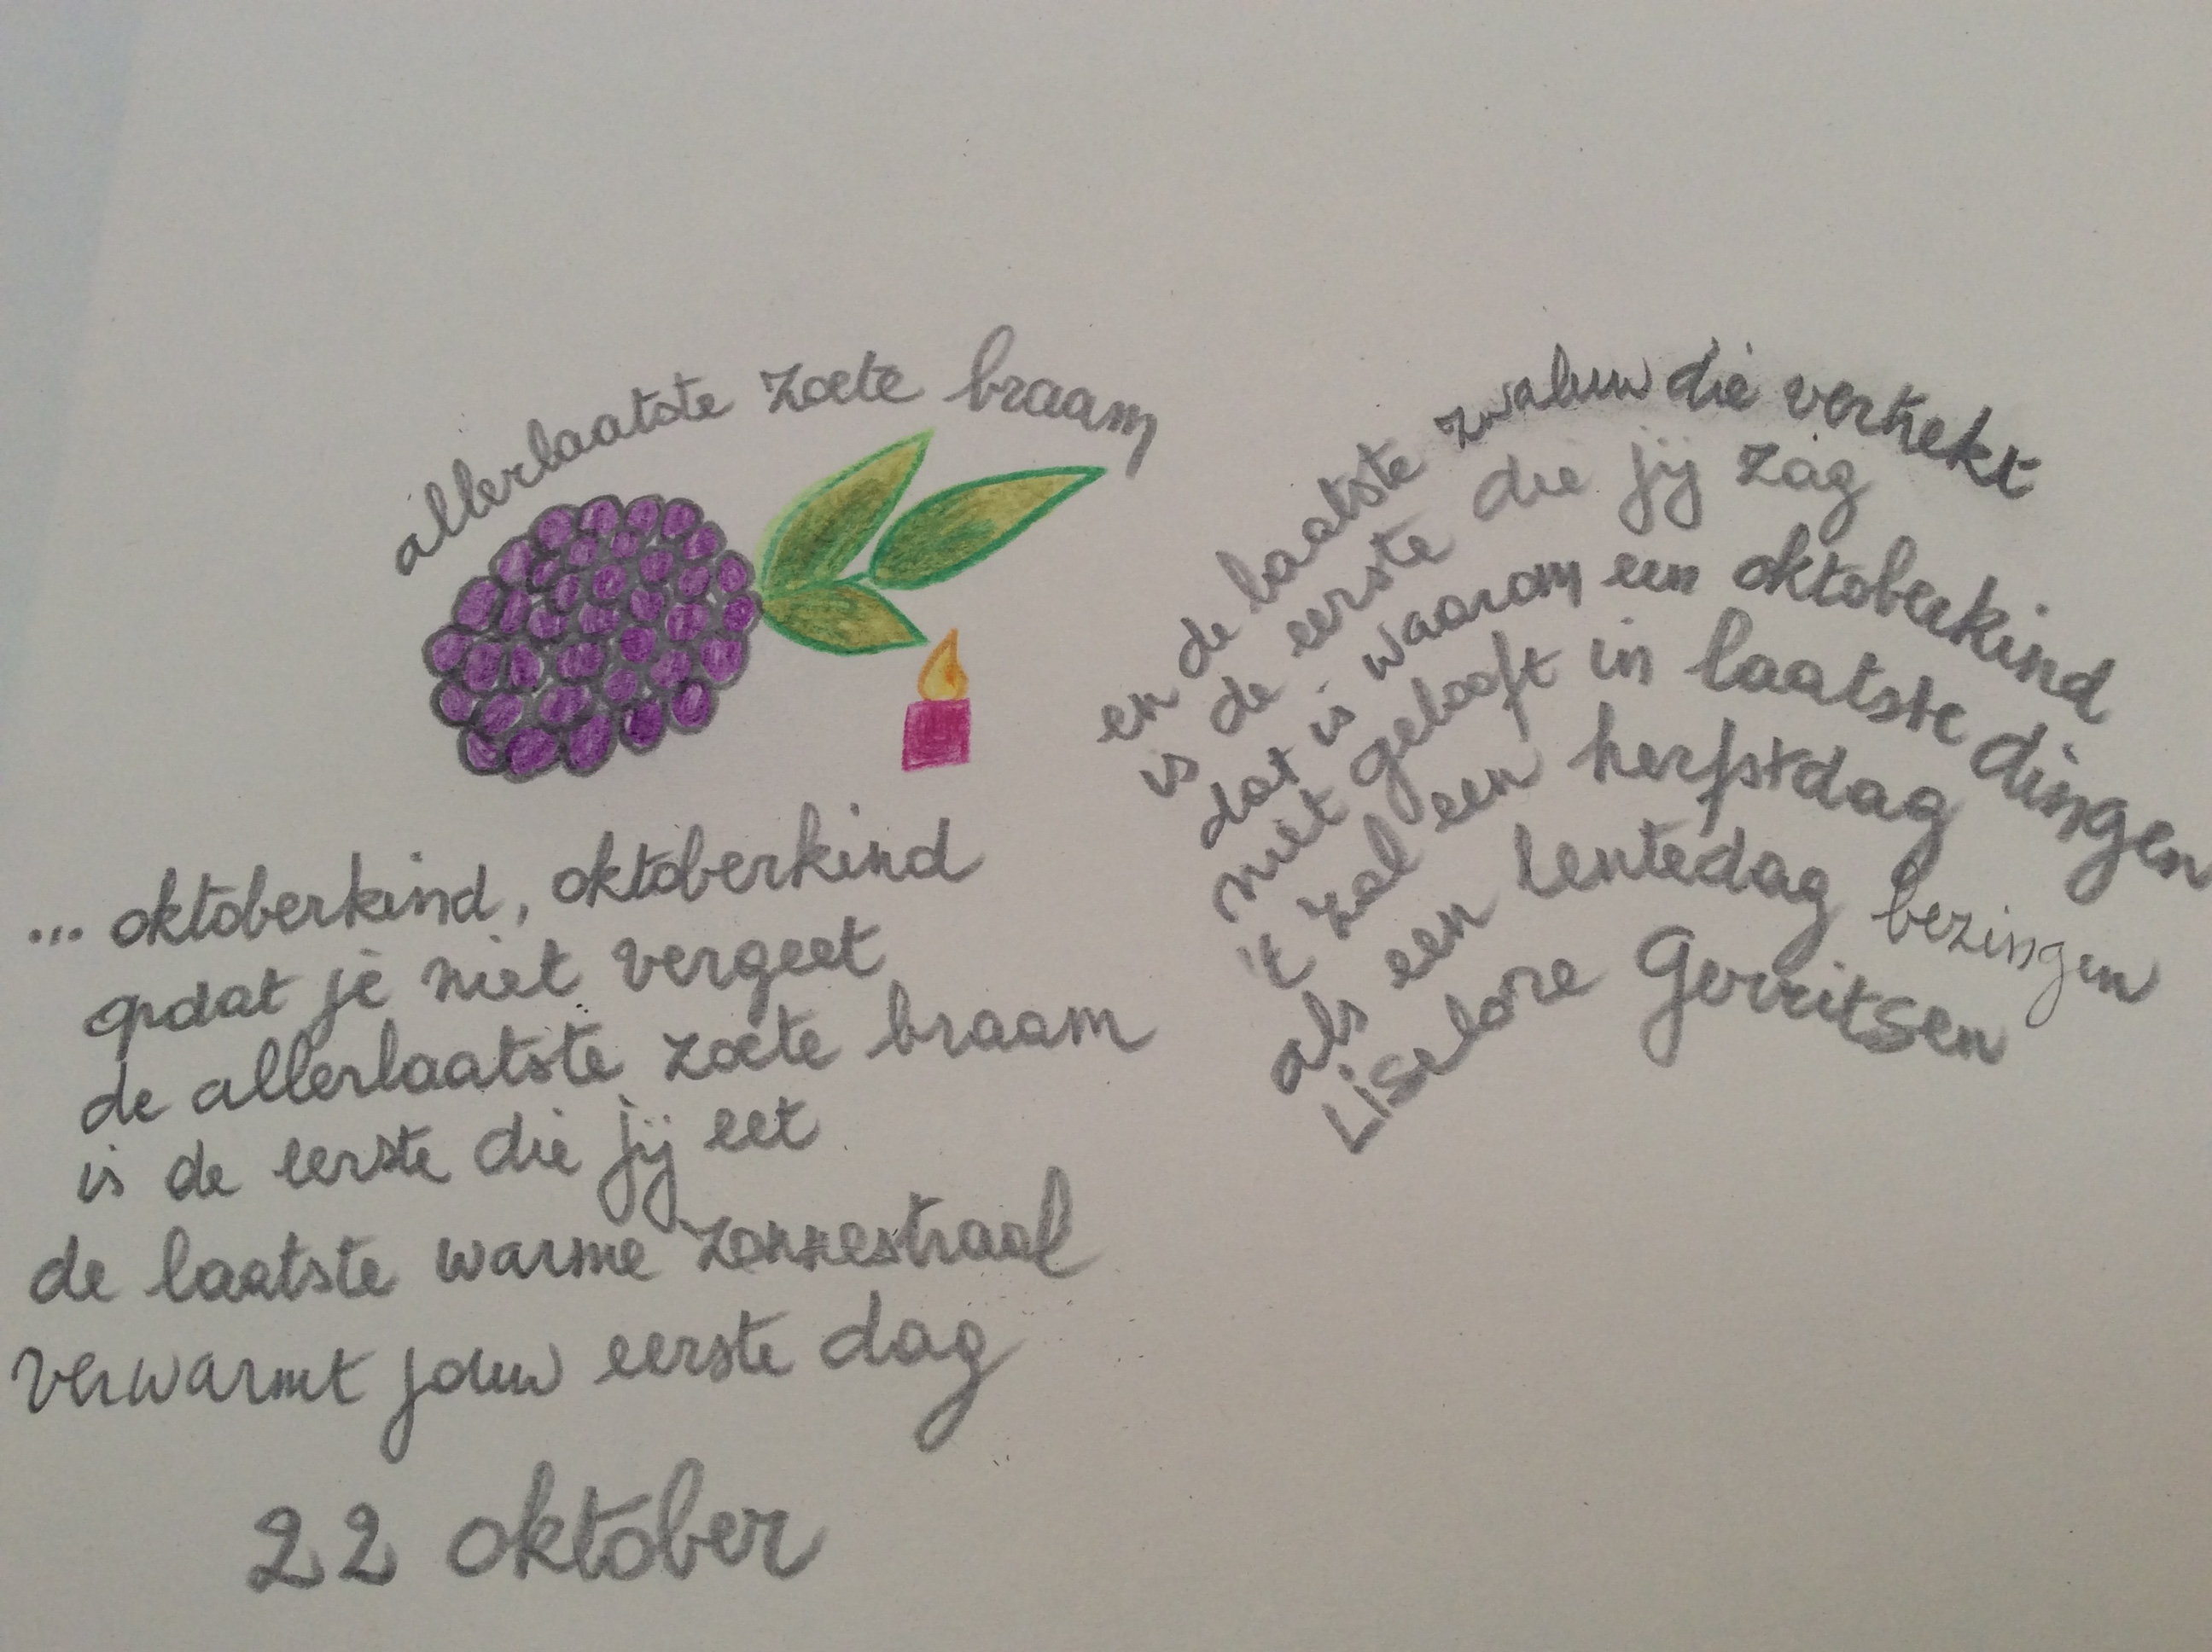 allerlaatste zoete braam
... oktoberkind, oktoberkind
opdat je niet vergeet
de allerlaatste zoete braam
is de eerste die jij eet
de laatste warme zonnestraal
verwarmt jouw eerste dag
22 oktober
en de laatste zwaluw die vertrekt
is de eerste die jij zag
dat is waarom een oktoberkind
niet gelooft in laatste dingen
't zal een herfstdag
als een lentedag bezingen
Liselore Gerritsen